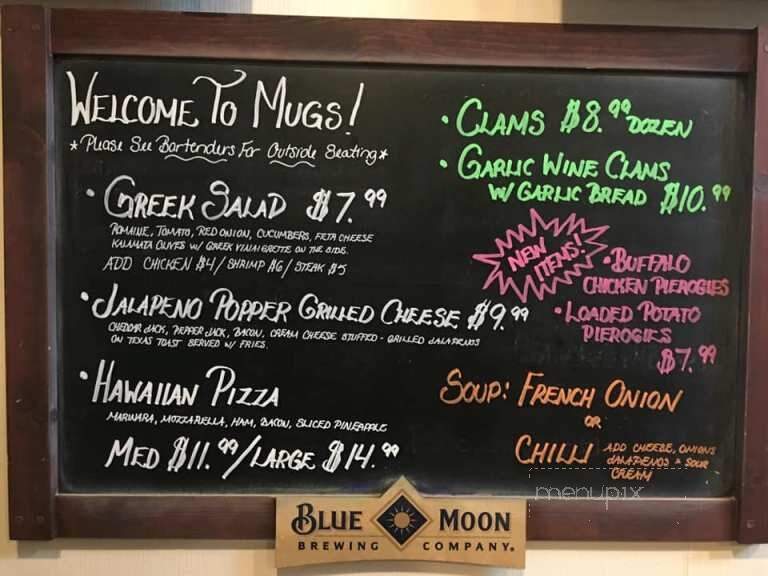 WELCOME TO MUGS!
*Please See Bartenders For Outside Seating*
• GREEK SALAD $7.99
ROMAINE, TOMATO, RED ONION, CUCUMBERS, FETA CHEESE
KALAMATA OLIVES W/ GREEK VINAIGRETTE ON THE SIDE.
ADD CHICKEN $4/ SHRIMP $6/ STEAK $5
• JALAPENO POPPER GRILLED CHEESE $9.99
CHEDDAR JACK, PEPPER JACK, BACON, CREAM CHEESE STUFFED - GRILLED JALAPENOS
ON TEXAS TOAST SERVED W/ FRIES.
• HAWAIIAN PIZZA
MARINARA, MOZZARELLA, HAM, BACON, SLICED PINEAPPLE
MED $11.99/LARGE $14.99
• CLAMS $8.99 DOZEN
• GARLIC WINE CLAMS
W/ GARLIC BREAD $10.99
NEW
ITEMS!
• BUFFALO
CHICKEN PIEROGIES
• LOADED POTATO
PIEROGIES
$7.99
SOUP: FRENCH ONION
OR
CHILLI ADD CHEESE, ONIONS
JALAPENOS & SOUR
CREAM
menupix
BLUE MOON
BREWING COMPANY®